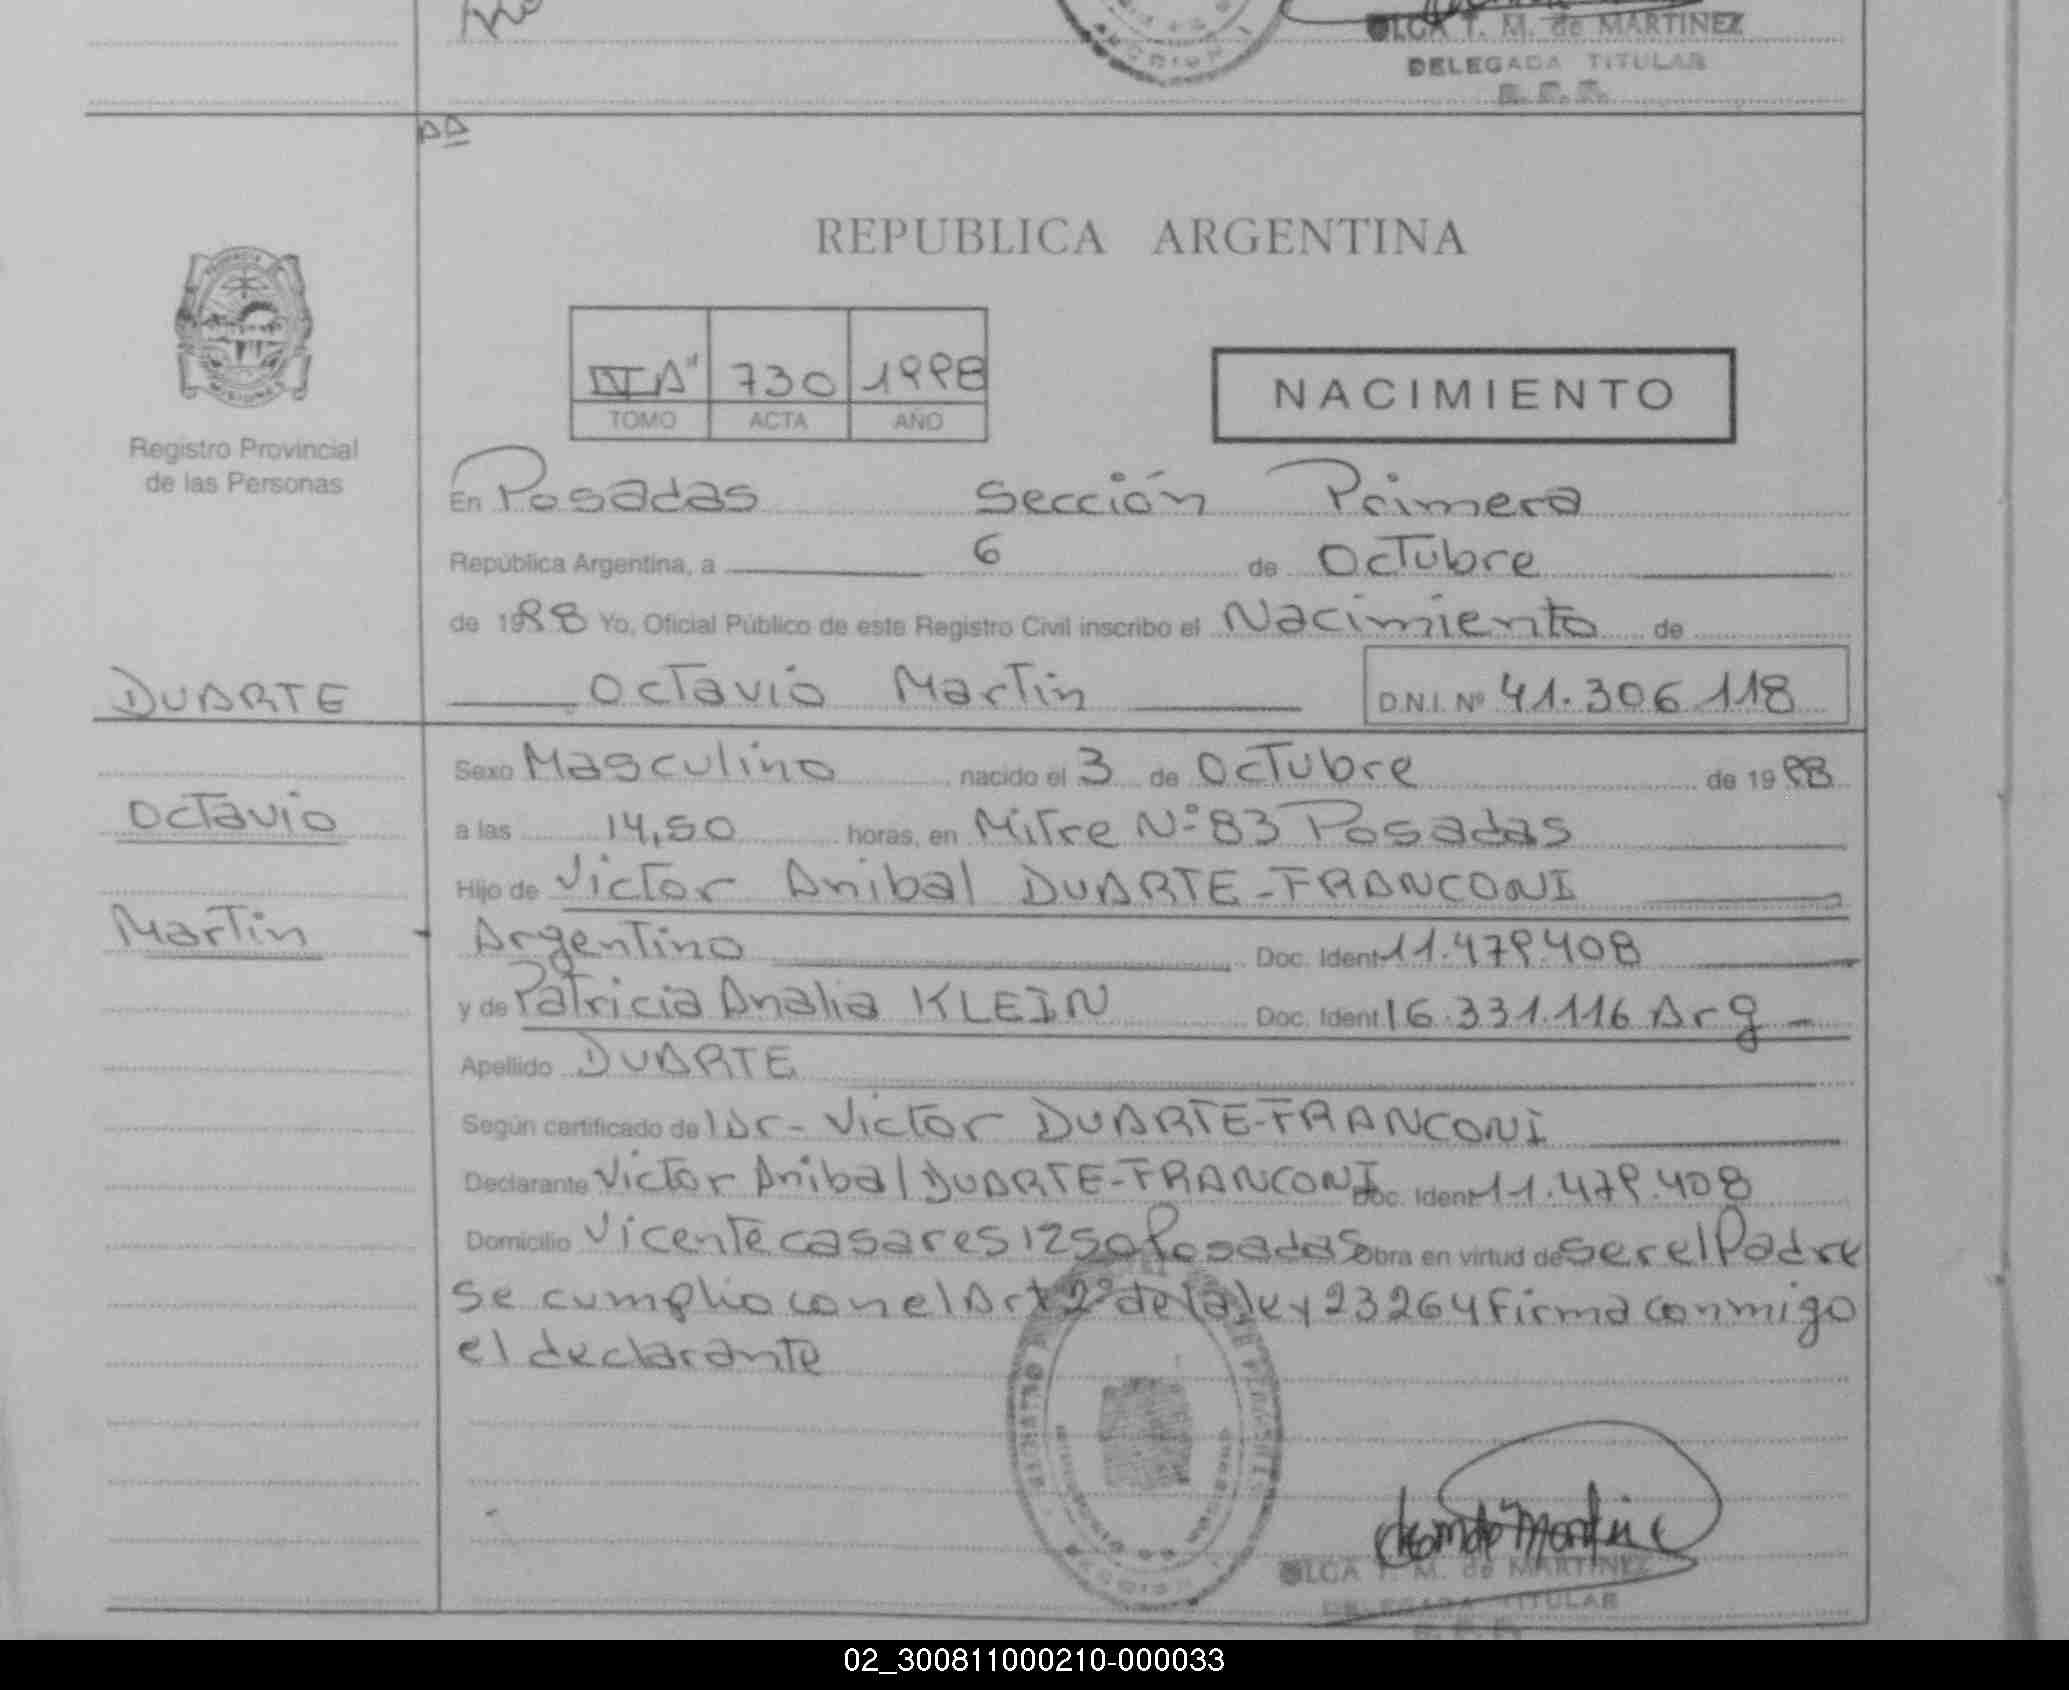 OLGA T. M. de MARTINEZ
DELEGADA TITULAR
REPUBLICA ARGENTINA
730 1998
TOMO ACTA AÑO
NACIMIENTO
Registro Provincial
de las Personas
En Posadas Sección Primera
República Argentina, a 6 de Octubre
de 1998 Yo, Oficial Público de este Registro Civil inscribo el Nacimiento de
DUARTE
Octavio Martin D.N.I. Nº 41.306.118
Sexo Masculino nacido el 3 de Octubre de 1998
Octavio
a las 14,50 horas, en Mitre Nº 83 Posadas
Hijo de Victor Anibal DUARTE-FRANCONI
Martin
Argentino Doc. Ident 11.479.408
y de Patricia Analia KLEIN Doc. Ident 16.331.116 Arg -
Apellido DUARTE
Según certificado del Dr- Victor DUARTE-FRANCONI
Declarante Victor Anibal DUARTE-FRANCONI Doc. Ident 11.479.408
Domicilio Vicente casares 1250 Posadas obra en virtud de ser el Padre
Se cumplio con el Art 2º de la ley 23264 Firma conmigo
el declarante
OLGA T. M. de MARTINEZ
DELEGADA TITULAR
02_300811000210-000033